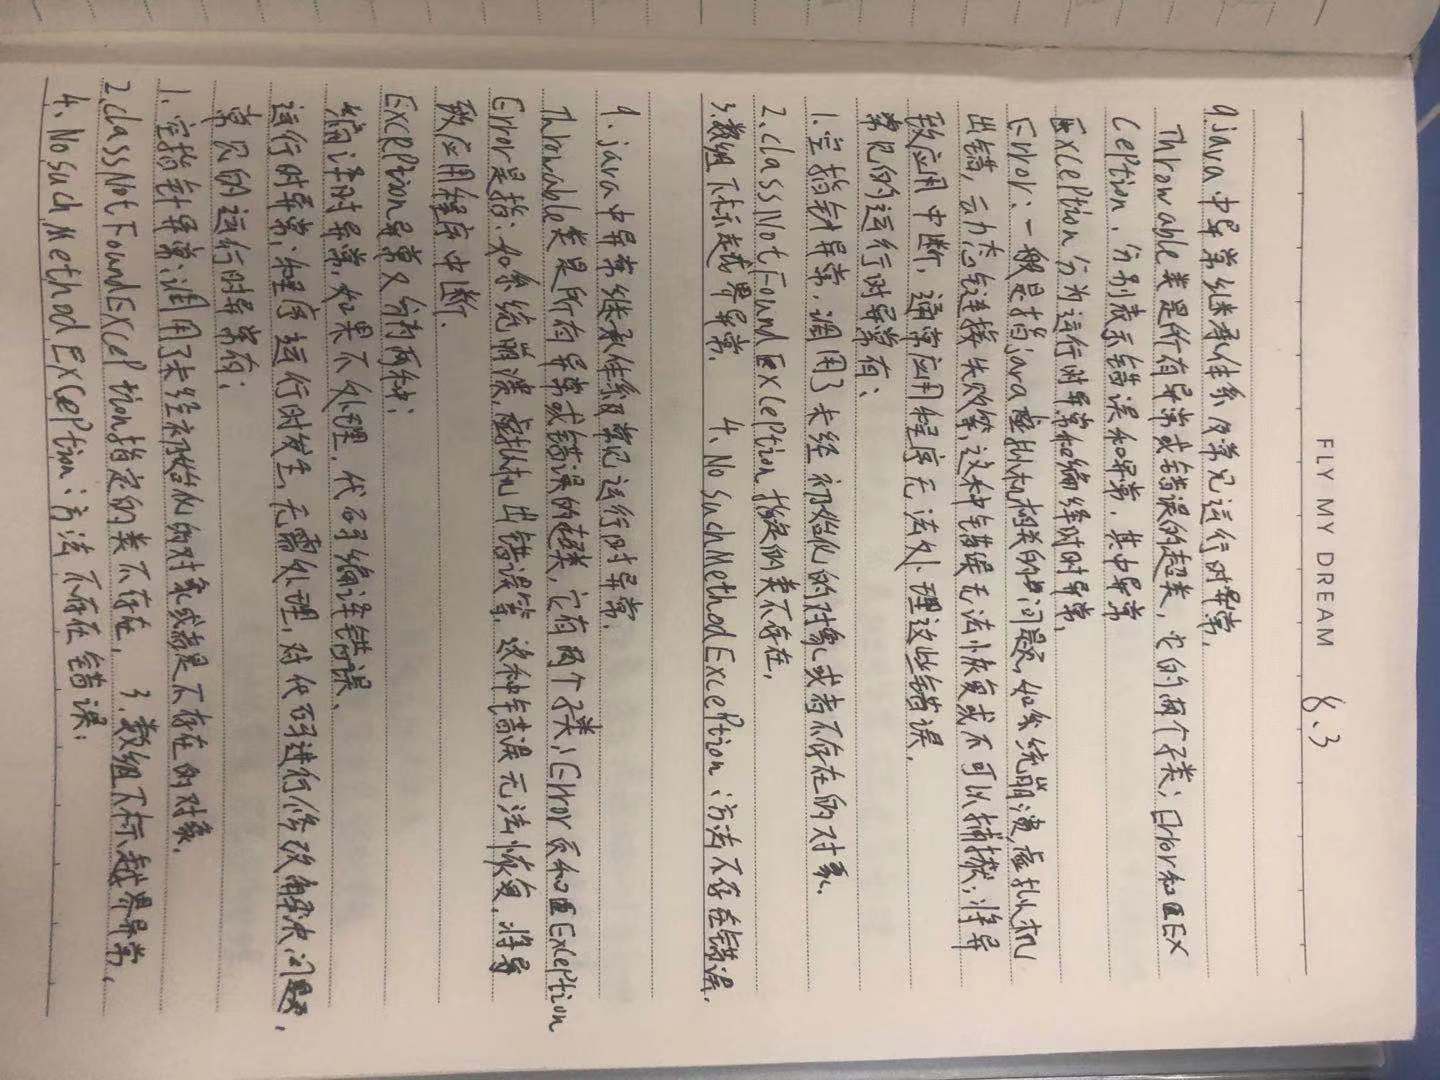 FLY MY DREAM 8.3
9.java中异常继承体系及常见运行时异常.
Throwable类是所有异常或错误的超类,它的两个子类:Error和Ex
ception,分别表示错误和异常,其中异常
Exception分为运行时异常和编绎时时异常,
Error:一般是指java虚拟机相关的问题,如系统崩溃,虚拟机
出错,动态链接失败等,这种错误无法恢复或不可以捕获,将导
致应用中断,通常应用程序无法处理这些错误,
常见的运行时异常有:
1.空指针异常,调用了未经初始化的对象或者不存在的对象.
2.classNotFoundException 指定的类不存在,
3.数组下标越界异常. 4.NosuchMethodException:方法不存在错误.
9.java中异常继承体系及常记运行时异常.
Throwable类是所有异常或错误的超类,它有两个子类:Error和Exception
Error是指:如系统崩溃,虚拟机出错误等,这种错误无法恢复,将导
致应用程序中断.
Exception异常又分为两种:
编译时异常,如果不处理,代码编译错误、
运行时异常:程序运行时发生,无需处理,对代码进行修改解决问题,
常见的运行时异常有:
1.空指针异常:调用了未经初始化的对象或就是不存在的对象.
2.classNotFoundException指定的类不存在, 3.数组下标越界异常,
4.NosuchMethodException:方法不存在错误: